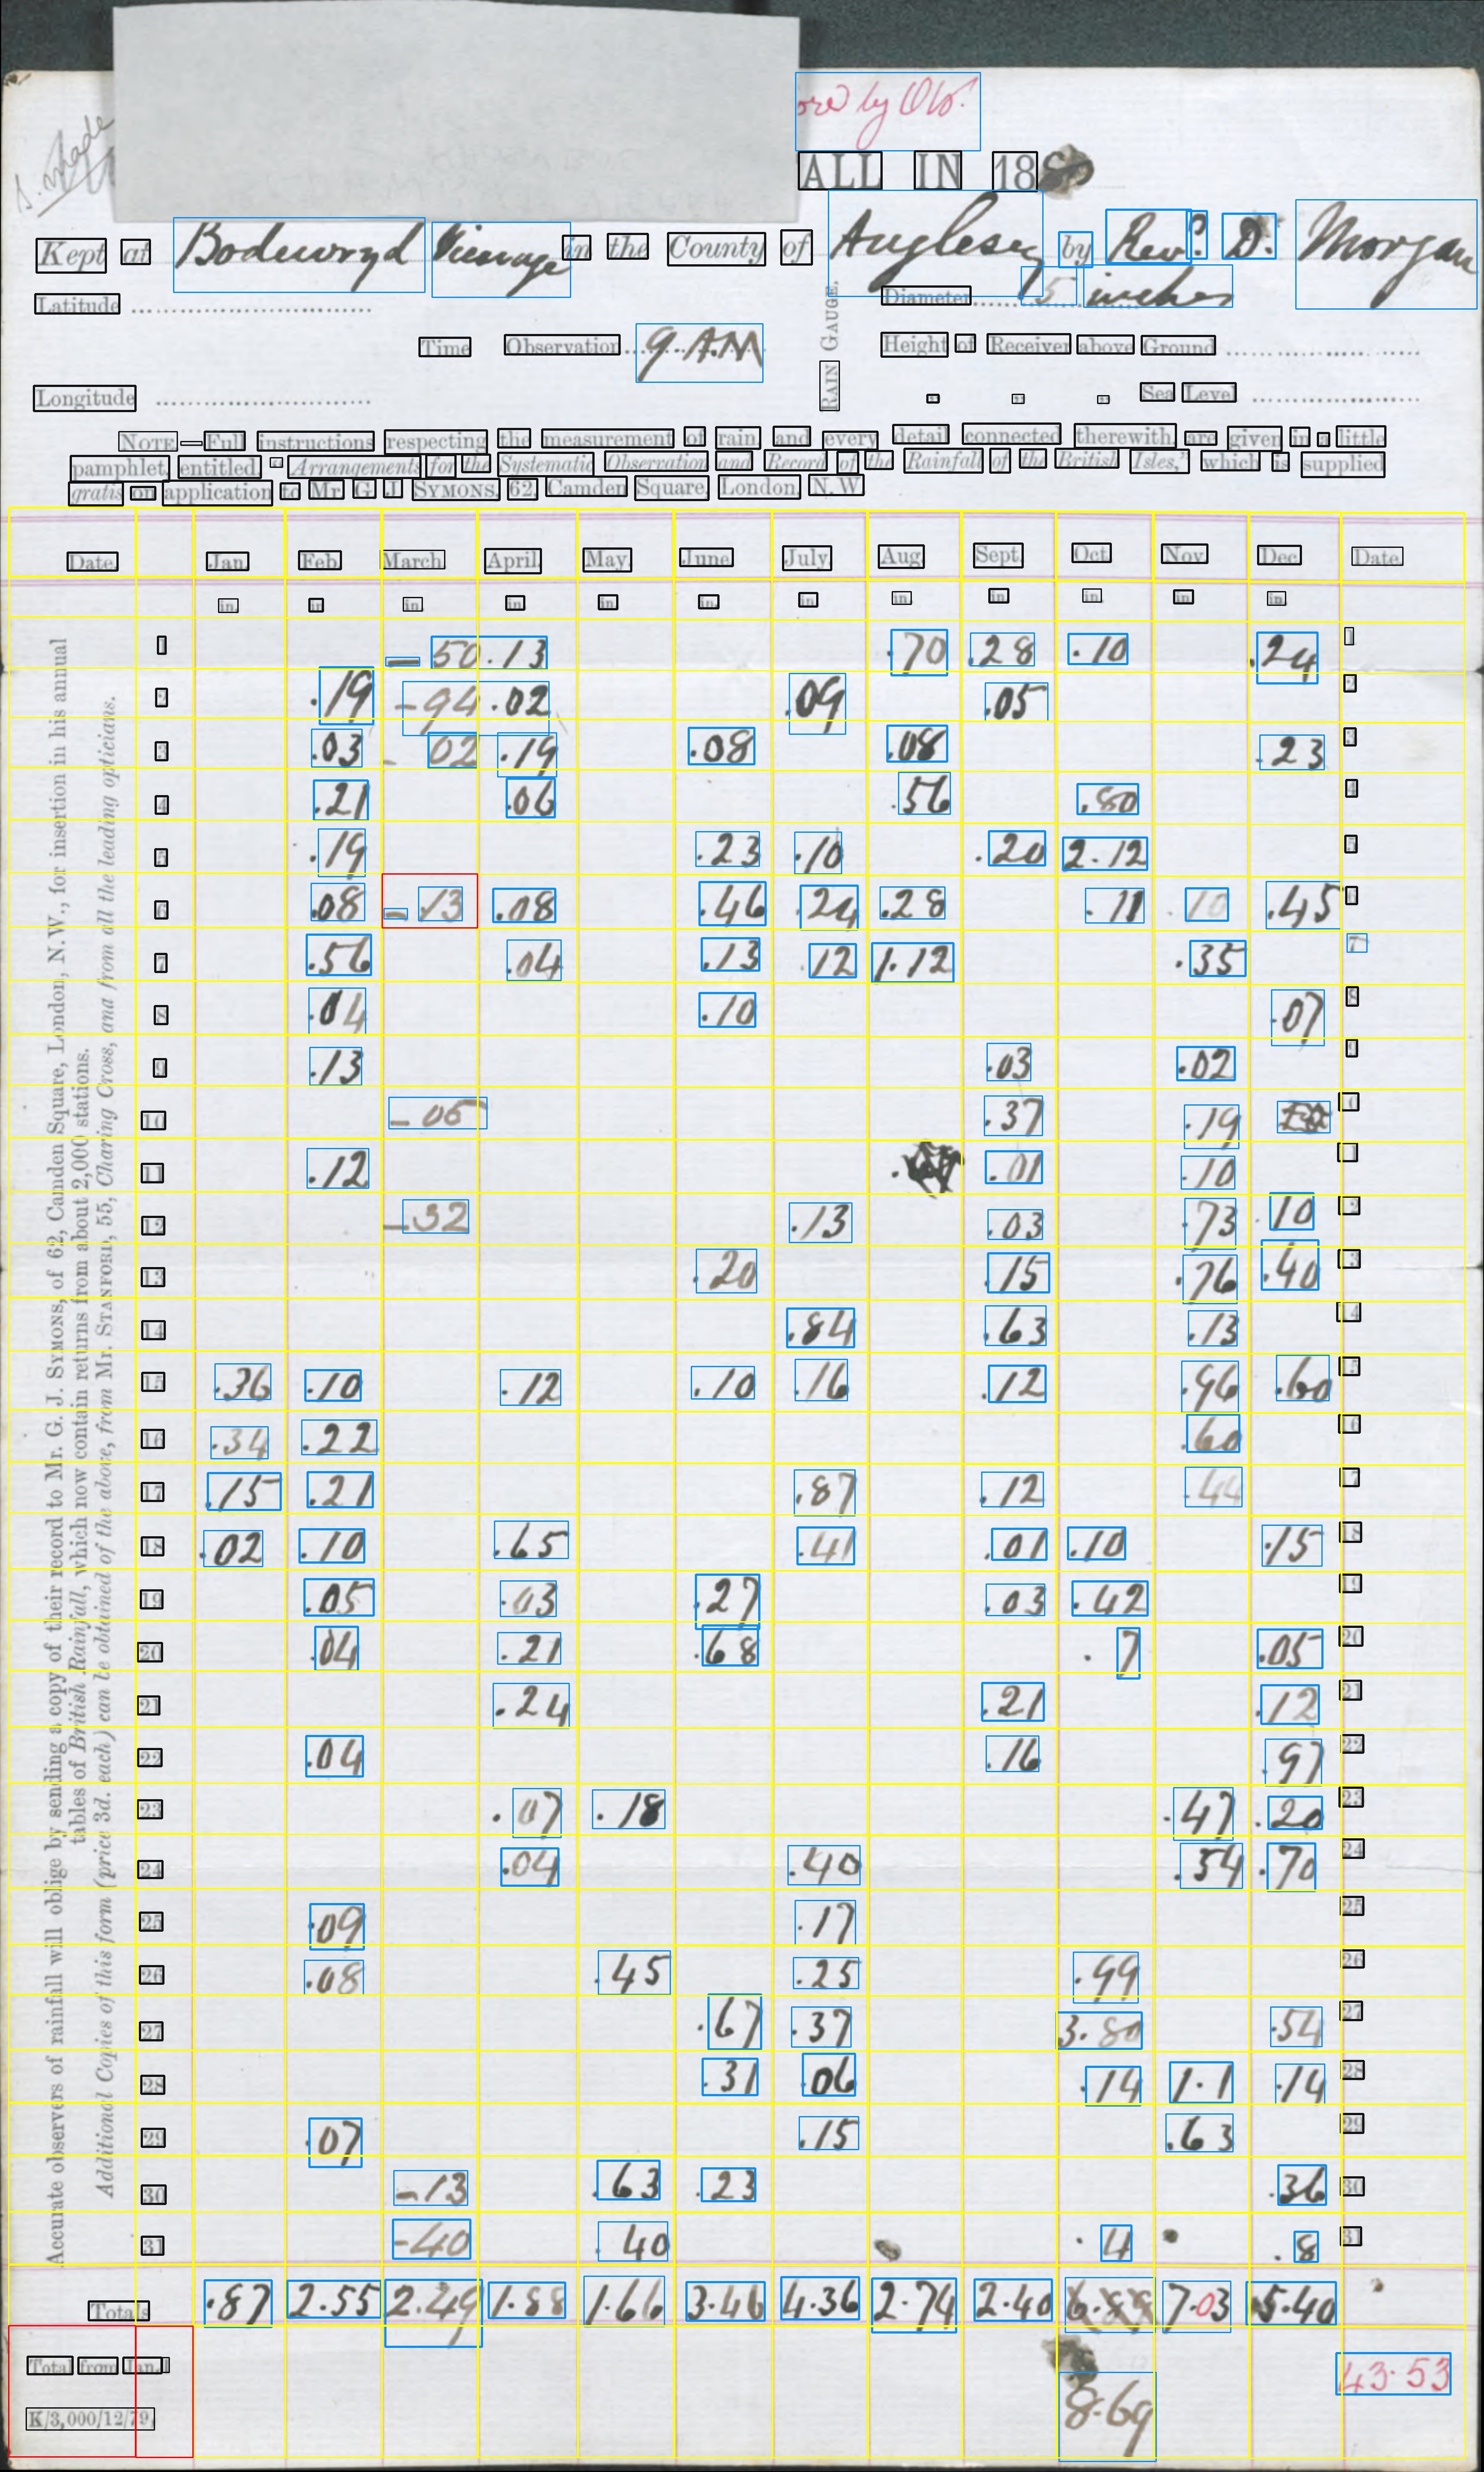 ored by Ob.
ALL IN 1880
Kept at Bodewryd Vicarage in the County of Anglesey by Revd. D. Morgan
Latitude
Diameter 5 inches
Time Observation 9 A.M
RAIN GAUGE.
Height of Receiver above Ground
Longitude
" " " Sea Level
NOTE—Full instructions respecting the measurement of rain, and every detail connected therewith, are given in a little
pamphlet, entitled "Arrangements for the Systematic Observation and Record of the Rainfall of the British Isles," which is supplied
gratis on application to Mr. G. J. SYMONS, 62, Camden Square, London, N.W.
Accurate observers of rainfall will oblige by sending a copy of their record to Mr. G. J. SYMONS, of 62, Camden Square, London, N.W., for insertion in his annual
tables of British Rainfall, which now contain returns from about 2,000 stations.
Additional Copies of this form (price 3d. each) can be obtained of the above, from Mr. STANFORD, 55, Charing Cross, and from all the leading opticians.
Date. Jan. Feb. March. April. May. June. July. Aug. Sept. Oct. Nov. Dec. Date.
in. in. in. in. in. in. in. in. in. in. in. in.
1 — 50 .13 .70 .28 .10 .24 1
2 .19 -94 .02 .09 .05 2
3 .03 - 02 .19 .08 .08 .23 3
4 .21 .06 .56 .80 4
5 .19 .23 .10 .20 2.12 5
6 .08 - .13 .08 .46 .24 .28 .11 .10 .45 6
7 .56 .04 .13 .12 1.12 .35 7
8 .04 .10 .07 8
9 .13 .03 .02 9
10 -05 .37 .19 10
11 .12 .01 .10 11
12 -32 .13 .03 .73 .10 12
13 .20 .15 .76 .40 13
14 .84 .63 .13 14
15 .36 .10 .12 .10 .16 .12 .96 .60 15
16 .34 .22 .60 16
17 .15 .21 .87 .12 .44 17
18 .02 .10 .65 .41 .01 .10 .15 18
19 .05 .03 .27 .03 .42 19
20 .04 .21 .68 . 7 .05 20
21 .24 .21 .12 21
22 .04 .16 .97 22
23 .07 .18 .47 .20 23
24 .04 .40 .54 .70 24
25 .09 .17 25
26 .08 .45 .25 .99 26
27 .67 .37 3.80 .54 27
28 .31 .06 .14 1.1 .14 28
29 .07 .15 .63 29
30 -13 .63 .23 .36 30
31 -40 .40 . 4 . .8 31
Totals .87 2.55 2.49 1.88 1.66 3.46 4.36 2.74 2.40 6.89 7.03 5.40
Total from Jan. 1 8.69 43.53
K/3,000/12/79.